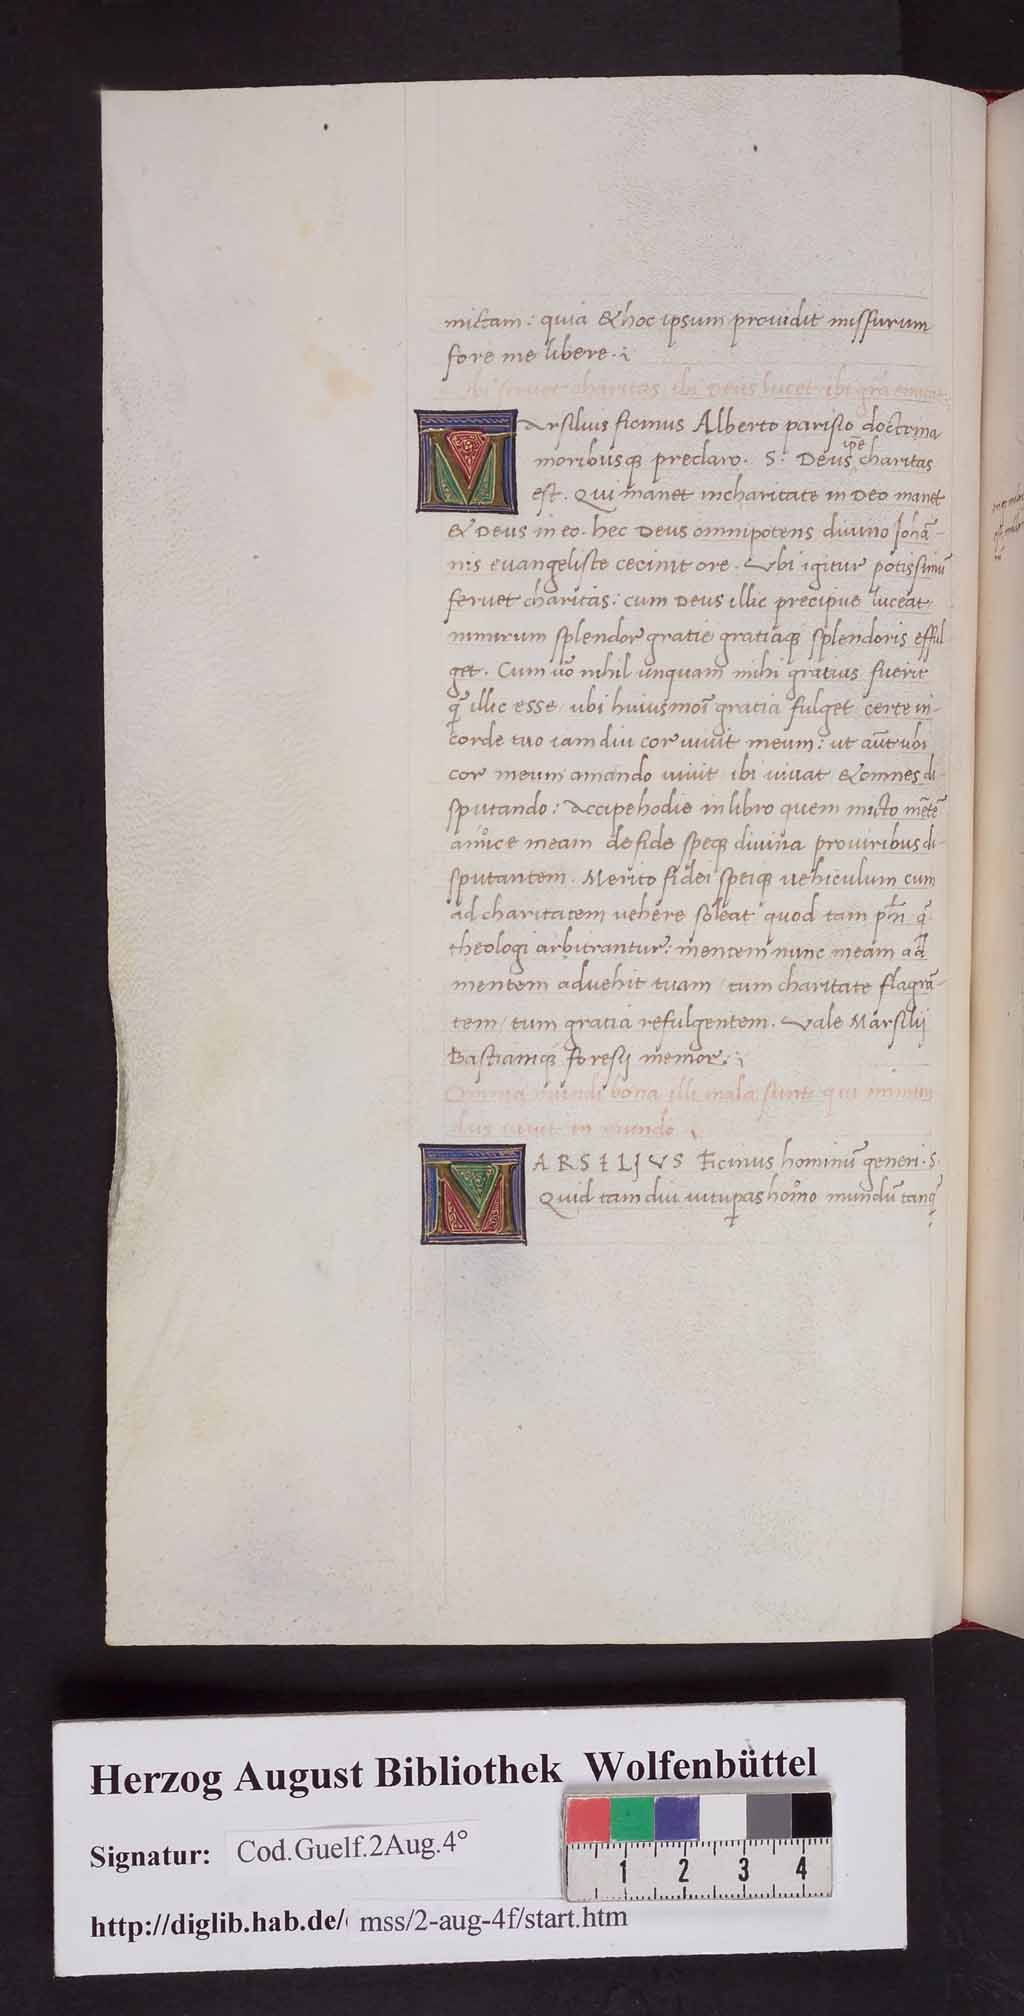 mittam: quia & hoc ipsum prouidit missurum
fore me libere.
Vbi feruet charitas, ibi Deus lucet ibi grã emicat.
Arsilius ficinus Alberto parisio doctrina
moribusq; preclaro. S. Deus ip̃e charitas
est. Qui manet in charitate in Deo manet
& Deus in eo. hec Deus omnipotens diuino Johã-
nis euangeliste cecinit ore. Vbi igitur potissimũ
feruet charitas: cum Deus illic precipue luceat:
nimirum splendor gratie gratiaq; splendoris efful
get. Cum uõ nihil unquam mihi gratius fuerit
q̃ illic esse / ubi huiusmoĩ gratia fulget certe in-
corde tuo iam diu cor uiuit meum: ut aũt ubi
cor meum amando uiuit ibi uiuat & omnes di-
sputando: Accipe hodie in libro quem micto mẽtẽ
amice meam de fide speq; diuina pro uiribus di-
sputantem. Merito fidei speiq; uehiculum cum
ad charitatem uehere soleat quod tam pħi q̃
theologi arbitrantur: mentem nunc meam ad
mentem aduehit tuam / tum charitate flagrã-
tem / tum gratia refulgentem. Vale Marsilij
Bastianiq; foresij memor.
Omnia mundi bona illi mala sunt qui immun
dus uiuit in mundo
MARSILIVS Ficinus hominũ generi. S.
Quid tam diu uitup̱as homo mundũ tanq̃
Herzog August Bibliothek Wolfenbüttel
Signatur: Cod.Guelf.2Aug.4°
1 2 3 4
http://diglib.hab.de/ mss/2-aug-4f/start.htm